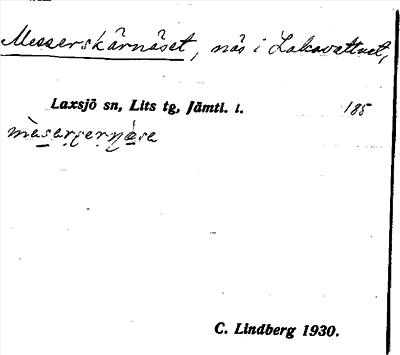 Messerskärnäset, näs i Lakavattnet,
Laxsjö sn, Lits tg, Jämtl. l. 185
C. Lindberg 1930.